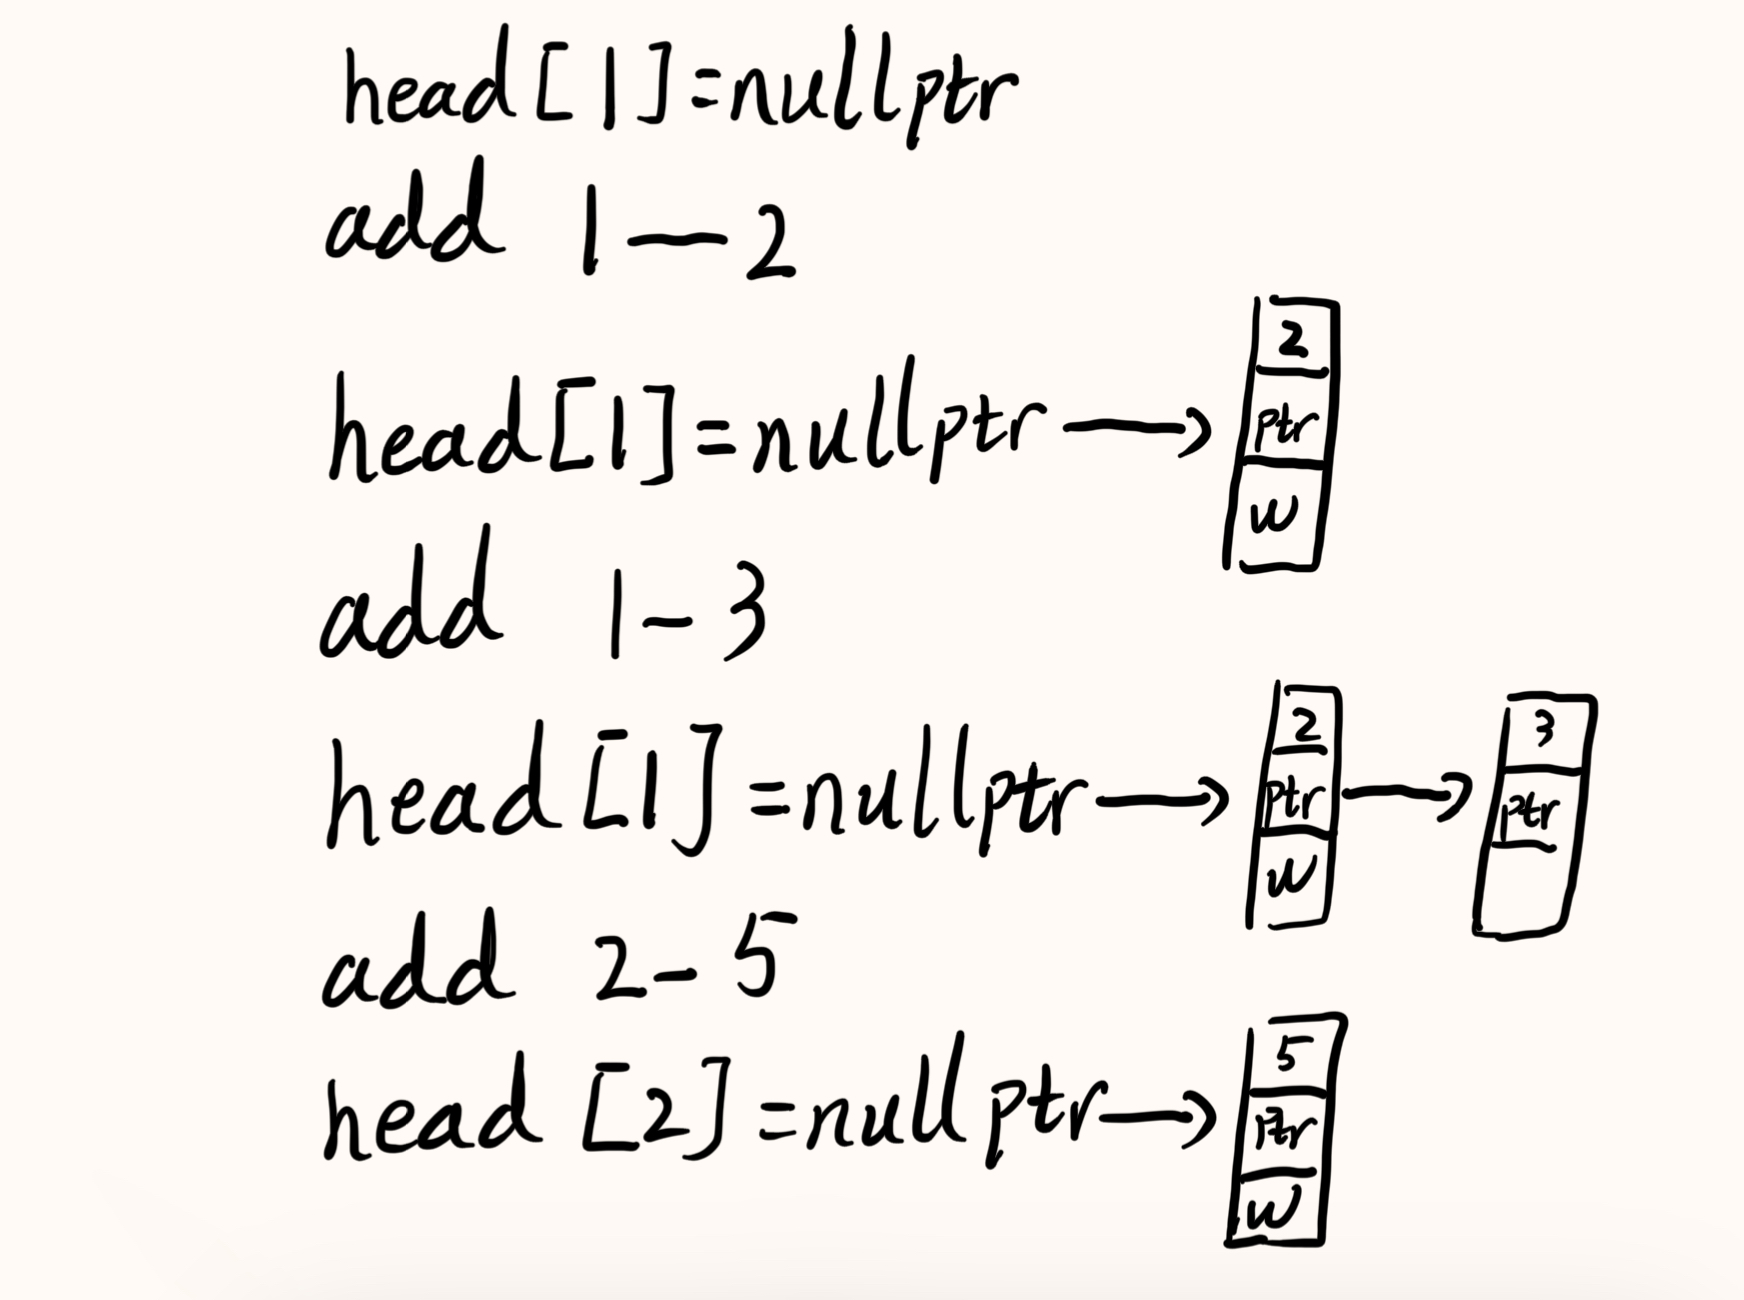 head[1]=nullptr
add 1—2
head[1]=nullptr → 2 ptr w
add 1-3
head[1]=nullptr → 2 ptr w → 3 ptr
add 2-5
head[2]=nullptr → 5 ptr w